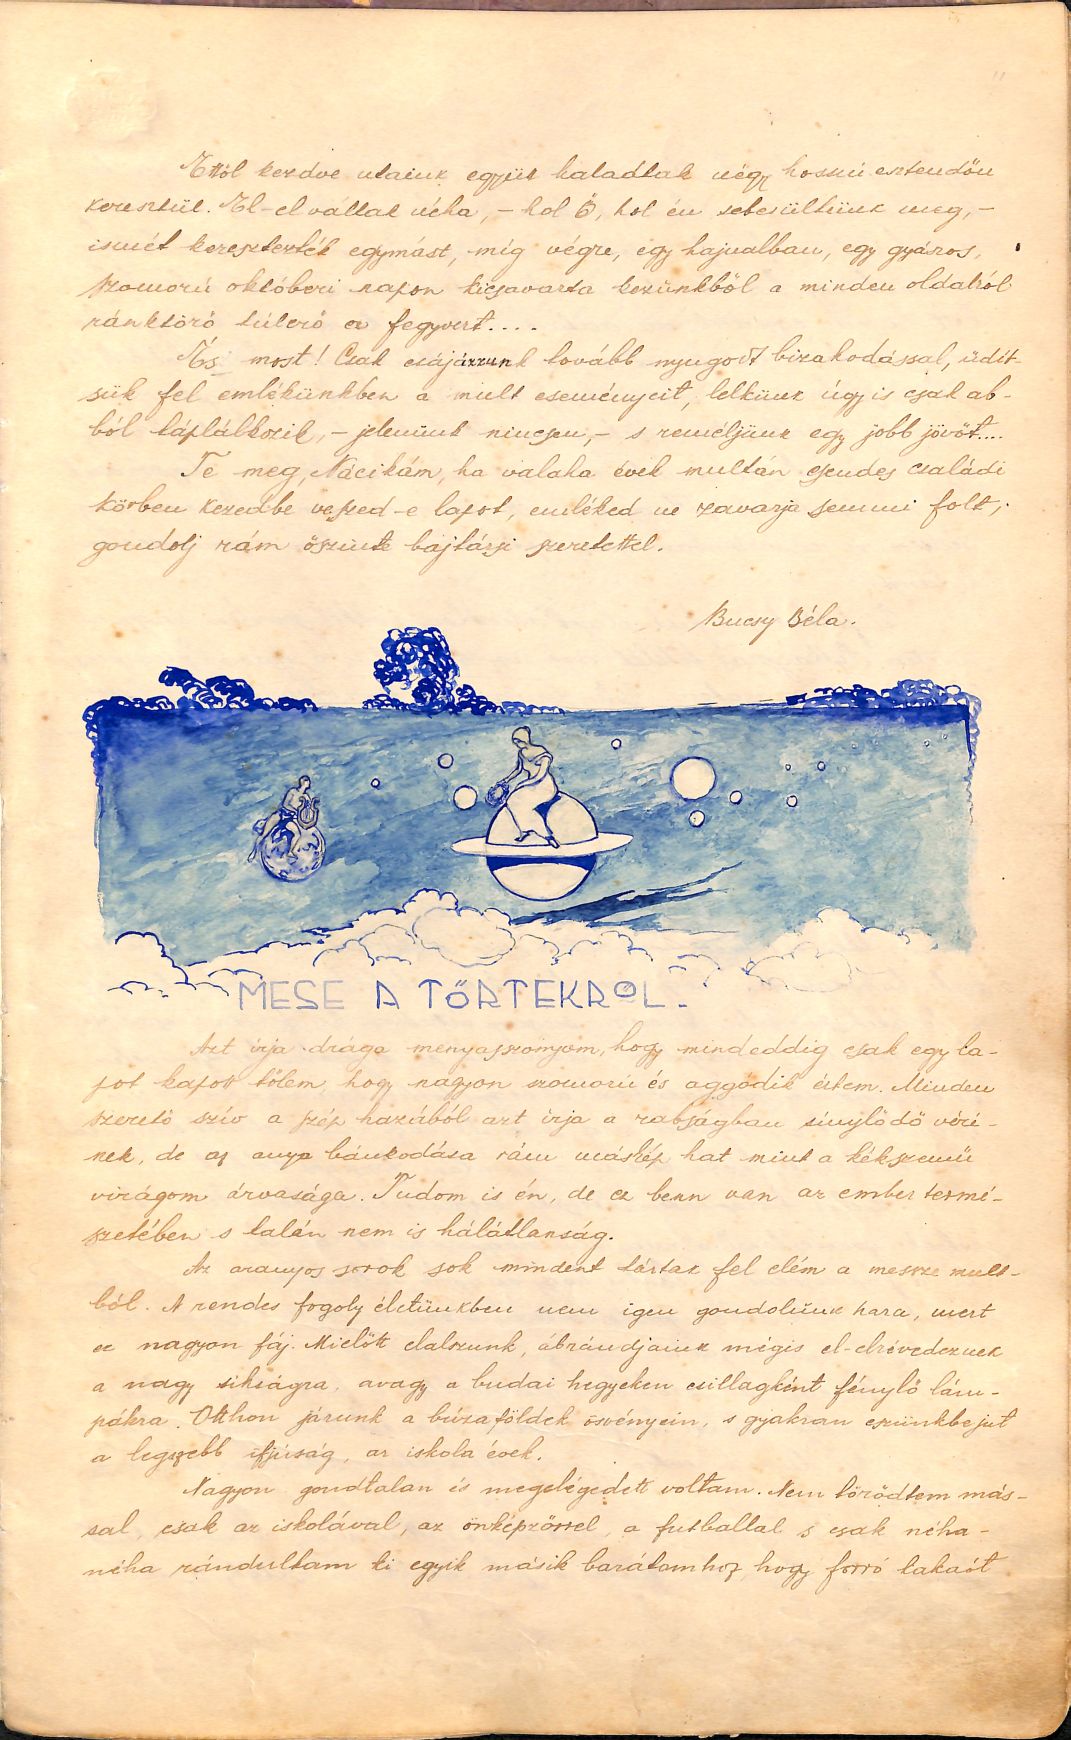 Ettöl kezdve utaink együt haladtak négy hosszú esztendőn
keresztül. El-el váltak néha, – hol Ő, hol én sebesültünk meg, –
ismét keresztezték egymást, míg végre, egy hajnalban, egy gyászos,
szomorú októberi napon kicsavarta kezünkből a minden oldalról
ránktörő túlerő a fegyvert....
És most! Csak csájázzunk tovább nyugodt bizakodással, üdít-
sük fel emlékünkben a mult eseményeit, lelkünk úgy is csak ab-
ból táplálkozik, – jelenünk nincsen, – s reméljünk egy jobb jövőt....
Te meg, Nácikám, ha valaha évek multán csendes családi
körben kezedbe veszed-e lapot, emléked ne zavarja semmi folt,
gondolj rám őszinte bajtársi szeretettel.
Bucsy Béla.
MESE A TŐRTEKRŐL.
Azt írja drága menyasszonyom, hogy mindeddig csak egy la-
pot kapott tőlem, hogy nagyon szomorú és aggódik értem. Minden
szerető szív a szép hazából azt írja a rabságban sínylődő véri-
nek, de az anya bánkodása rám máskép hat mint a kékszemű
virágom árvasága. Tudom is én, de ez benn van az ember termé-
szetében s talán nem is hálátlanság.
Az aranyos sorok sok mindent tártak fel elém a messze mult-
ból. A rendes fogoly életünkben nem igen gondolunk haza, mert
ez nagyon fáj. Mielőtt elalszunk, ábrándjaink mégis el-elrévedeznek
a nagy síkságra, avagy a budai hegyeken csillagként fénylő lám-
pákra. Otthon járunk a búzaföldek ösvényein, s gyakran eszünkbejut
a legszebb ifjúság, az iskola évek.
Nagyon gondtalan és megelégedett voltam. Nem törődtem más-
sal, csak az iskolával, az önképzőssel, a futballal s csak néha-
néha rándultam ki egyik másik barátomhoz, hogy forró